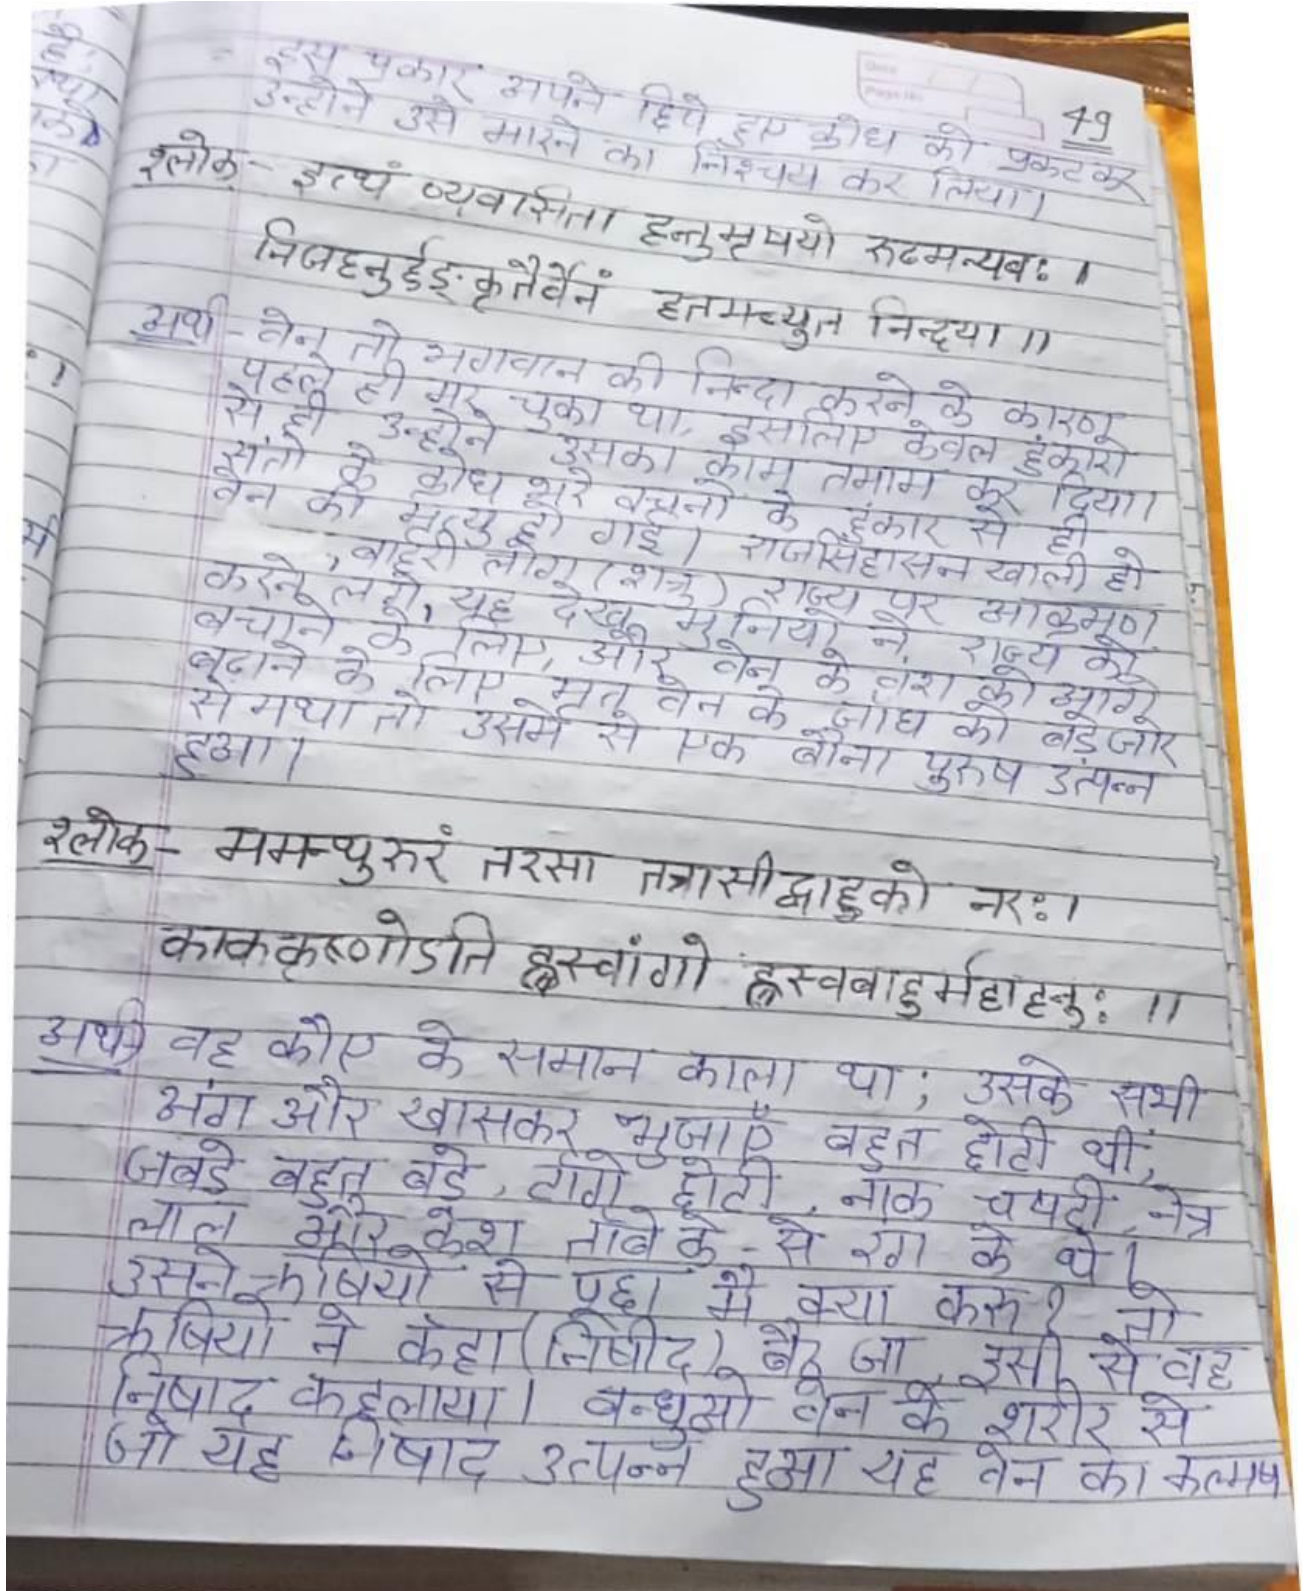 49
इस प्रकार अपने छिपे हुए क्रोध को प्रकट कर
उन्होने उसे मारने का निश्चय कर लिया।
श्लोक - इत्थं व्यवासिता हन्तुमृषयो रूढमन्यवः।
निजहनुर्हुङ्कृतैर्वेनं हतमच्युत निन्दया॥
अर्थ - वेन तो भगवान की निन्दा करने के कारण
पहले ही मर चुका था, इसलिए केवल हुंकारो
से ही उन्होने उसका काम तमाम कर दिया।
संतो के क्रोध भरे वचनो के हुंकार से ही
वेन की मृत्यु हो गई। राजसिंहासन खाली हो
, बाहरी लोग (शत्रु) राज्य पर आक्रमण
करने लगे, यह देख मुनियो ने राज्य को
बचाने के लिए, और वेन के वंश को आगे
बढाने के लिए मृत वेन के जाँघ को बड़े जोर
से मथा तो उसमे से एक बौना पुरुष उत्पन्न
हुआ।
श्लोक - ममन्थुरुरं तरसा तत्रासीद्बाहुको नरः।
काककृष्णोऽति ह्रस्वांगो ह्रस्वबाहुर्महाहनुः॥
अर्थ वह कौए के समान काला था; उसके सभी
अंग और खासकर भुजाएँ बहुत छोटी थीं,
जबड़े बहुत बड़े, टांगे छोटी, नाक चपटी, नेत्र
लाल और केश ताँबे के - से रंग के थे।
उसने ऋषियो से पूछा मै क्या करू? तो
ऋषियो ने कहा (निषीद) बैठ जा, इसी से वह
निषाद कहलाया। बन्धुओ वेन के शरीर से
जो यह निषाद उत्पन्न हुआ यह वेन का कल्मष